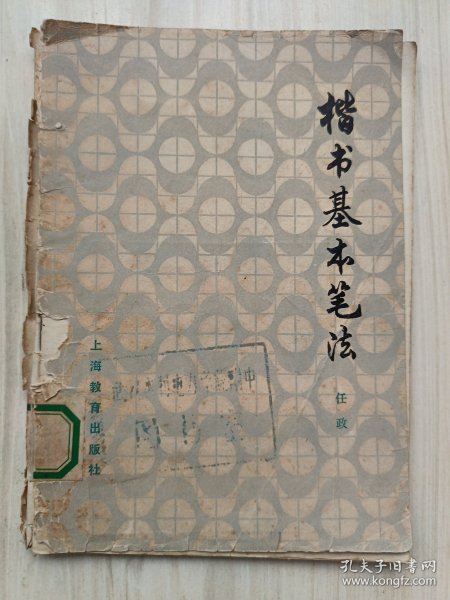 楷书基本笔法
任政
上海教育出版社
孔夫子旧书网
www.kongfz.com